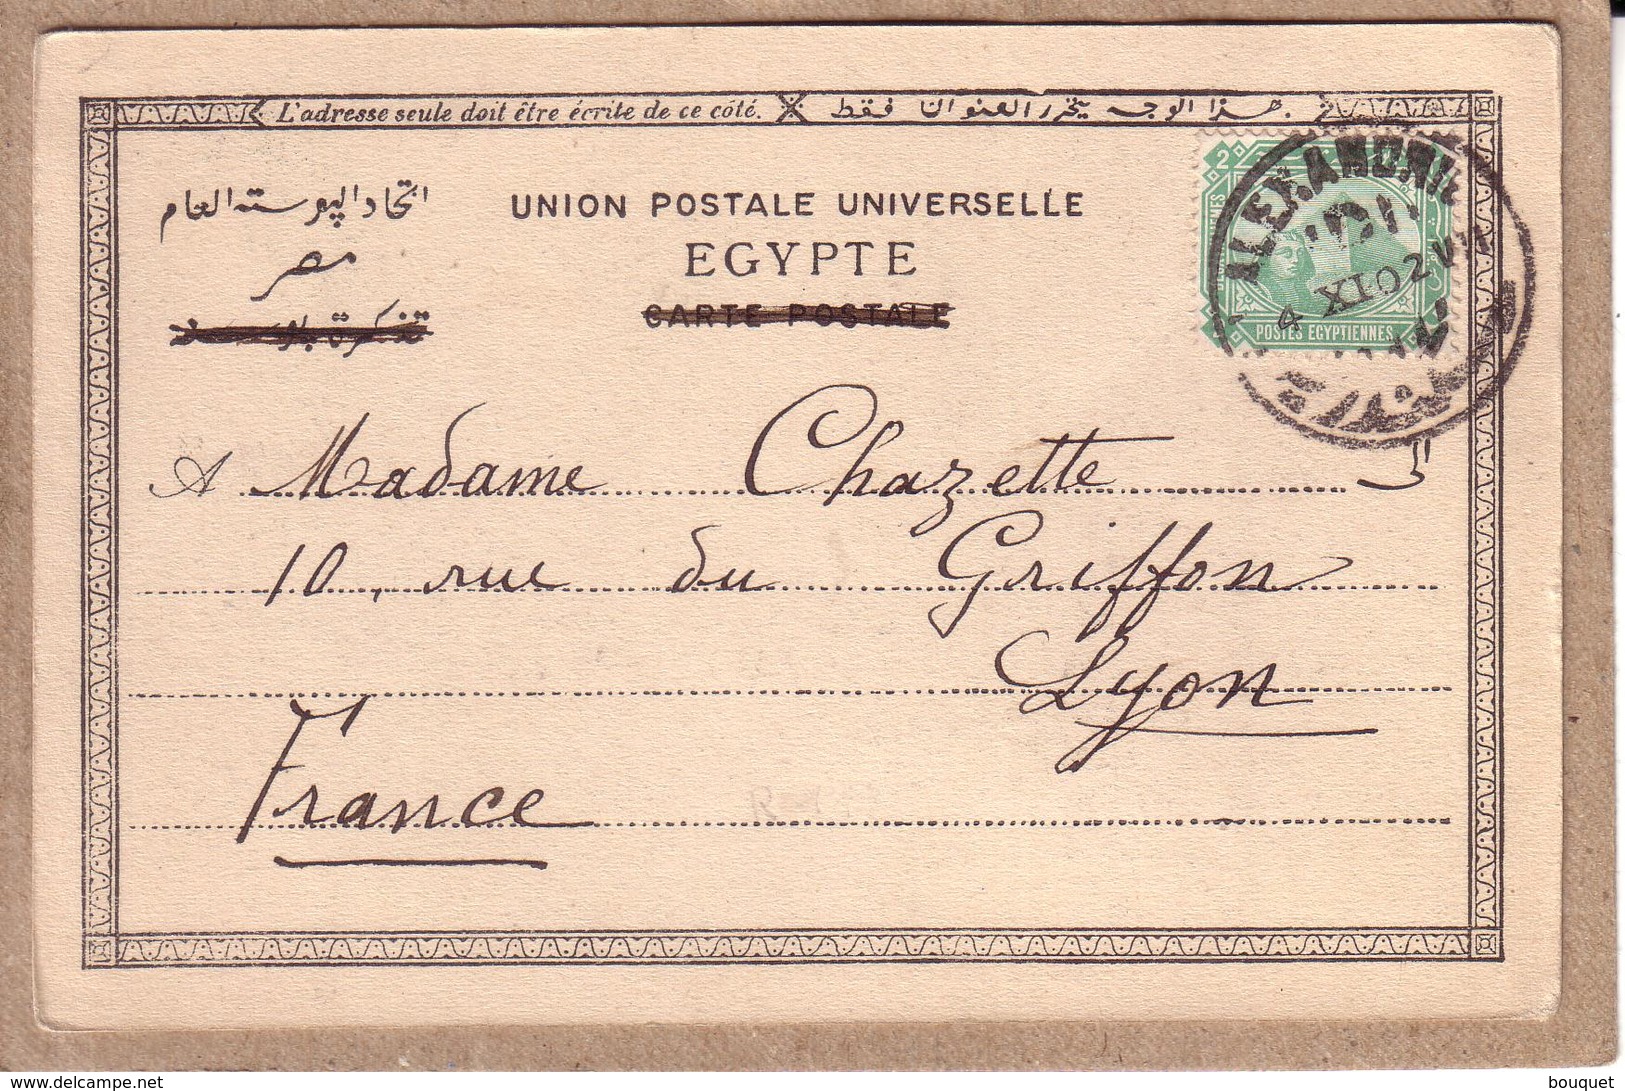 L'adresse seule doit être écrite de ce côté. هذا الوجه يحرر العنوان فقط
اتحاد البوسته العام
UNION POSTALE UNIVERSELLE
مصر
EGYPTE
تذكرة
CARTE POSTALE
2
POSTES EGYPTIENNES
ALEXANDRIE
4 IX 02
A Madame Chazette
10, rue du Griffon
Lyon
France
www.delcampe.net
bouquet